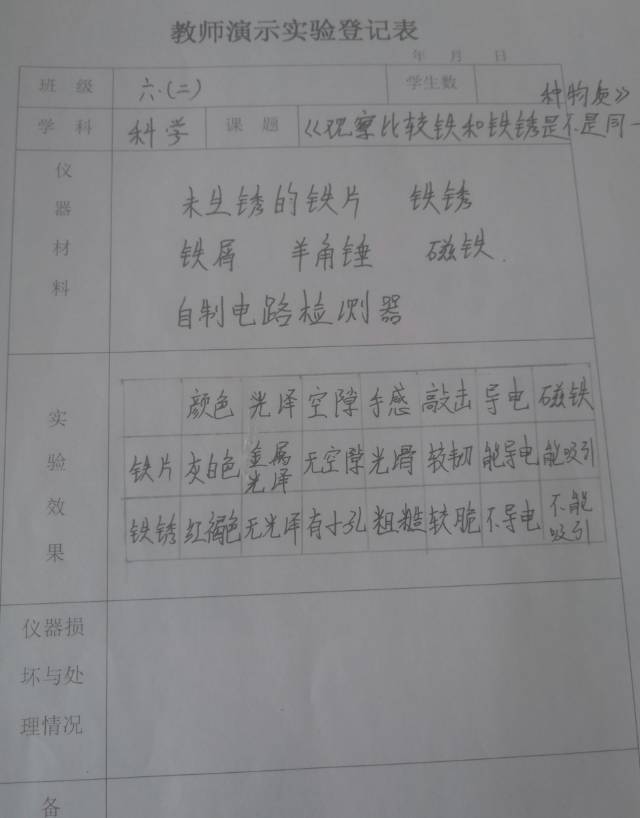 教师演示实验登记表
年 月 日
班 级 六.(二) 学生数
学 科 科学 课 题 《观察比较铁和铁锈是不是同一
种物质》
仪器材料
未生锈的铁片 铁锈
铁屑 羊角锤 磁铁.
自制电路检测器
实验效果
颜色 光泽 空隙 手感 敲击 导电 磁铁
铁片 灰白色 金属光泽 无空隙 光滑 较韧 能导电 能吸引
铁锈 红褐色 无光泽 有小孔 粗糙 较脆 不导电 不能吸引
仪器损
坏与处
理情况
备